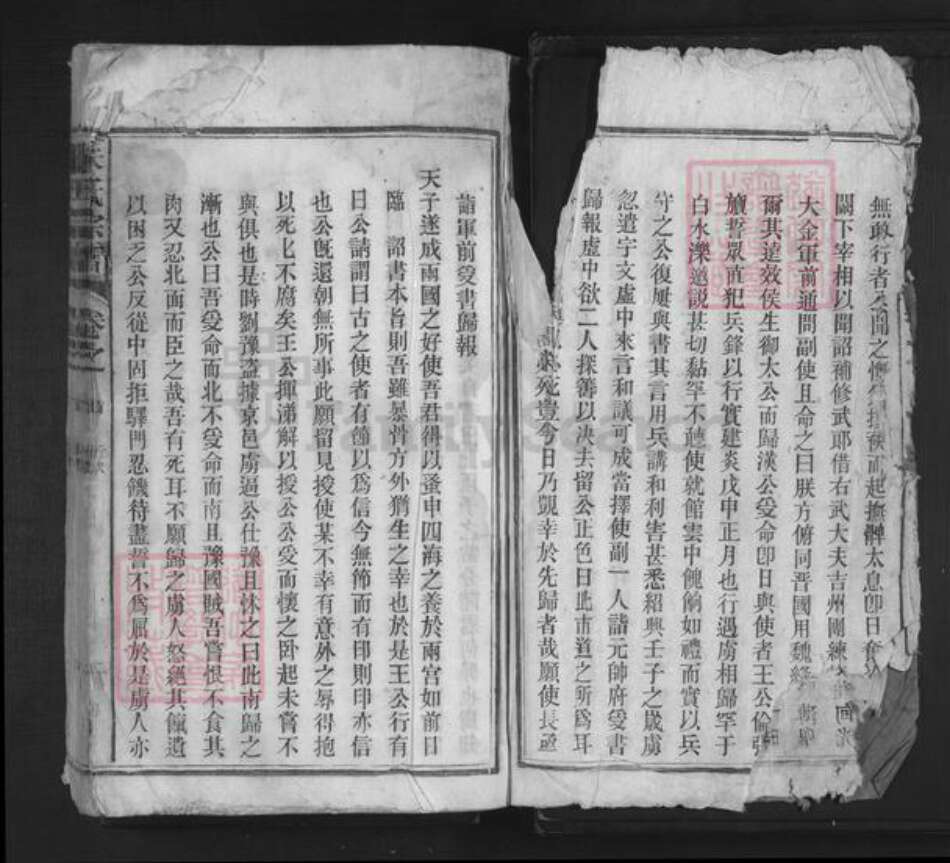 無政行者公聞之
而起撫髀太息卽日奮
闕下宰相以聞詔補修武郎借右武大夫吉州團練
大金軍前通問副使且命之曰朕方俯同晉國用魏絳
爾其遠效侯生御太公而歸漢公受命卽日與使者王公倫張
旃誓眾直犯兵鋒以行實建炎戊申正月也行遇虜相歸罕于
白水濼邀說甚切黏罕不聽使就館雲中餽餉如禮而實以兵
守之公復屢與書其言用兵講和利害甚悉紹興壬子之歲虜
忽遣宇文虛中來言和議可成當擇使副一人詣元帥府受書
歸報虛中欲二人探籌以決去留公正色曰此市道之所爲耳
死豈今日乃覬幸於先歸者哉願使長亟
詣軍前受書歸報
天子遂成兩國之好使吾君得以蚤申四海之養於兩宮如前日
臨 詔書本旨則吾雖暴骨方外猶生之幸也於是王公行有
日公請謂曰古之使者有節以爲信今無節而有印則印亦信
也公旣還朝無所事此願留見授使某不幸有意外之辱得抱
以死匕不腐矣王公揮涕解以授公公受而懷之卧起未嘗不
與俱也是時劉豫盜據京邑虜逼公仕豫且怵之曰此南歸之
漸也公曰吾受命而北不受命而南且豫國賊吾嘗恨不食其
肉又忍北面而臣之哉吾有死耳不願歸之虜人怒絕其餼遺
以困之公反從中固拒驛門忍饑待盡誓不爲屈於是虜人亦